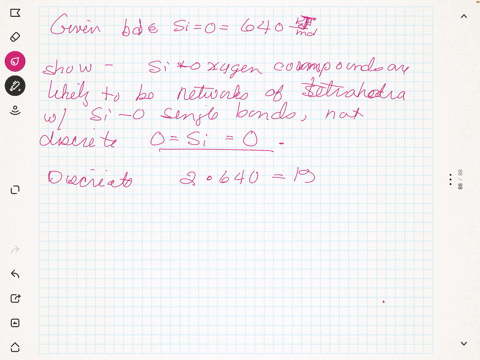 Given bde Si=O = 640 kJ/mol
show - Si-oxygen compounds are
likely to be networks of tetrahedra
w/ Si-O single bonds, not
discrete O=Si=O.
2•640 = 19
88 / 88